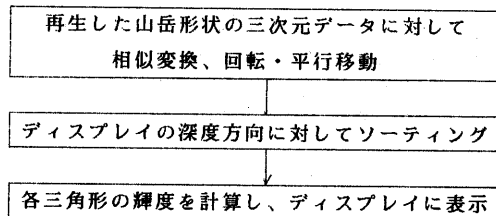 再生した山岳形状の三次元データに対して
相似変換、回転・平行移動
ディスプレイの深度方向に対してソーティング
各三角形の輝度を計算し、ディスプレイに表示